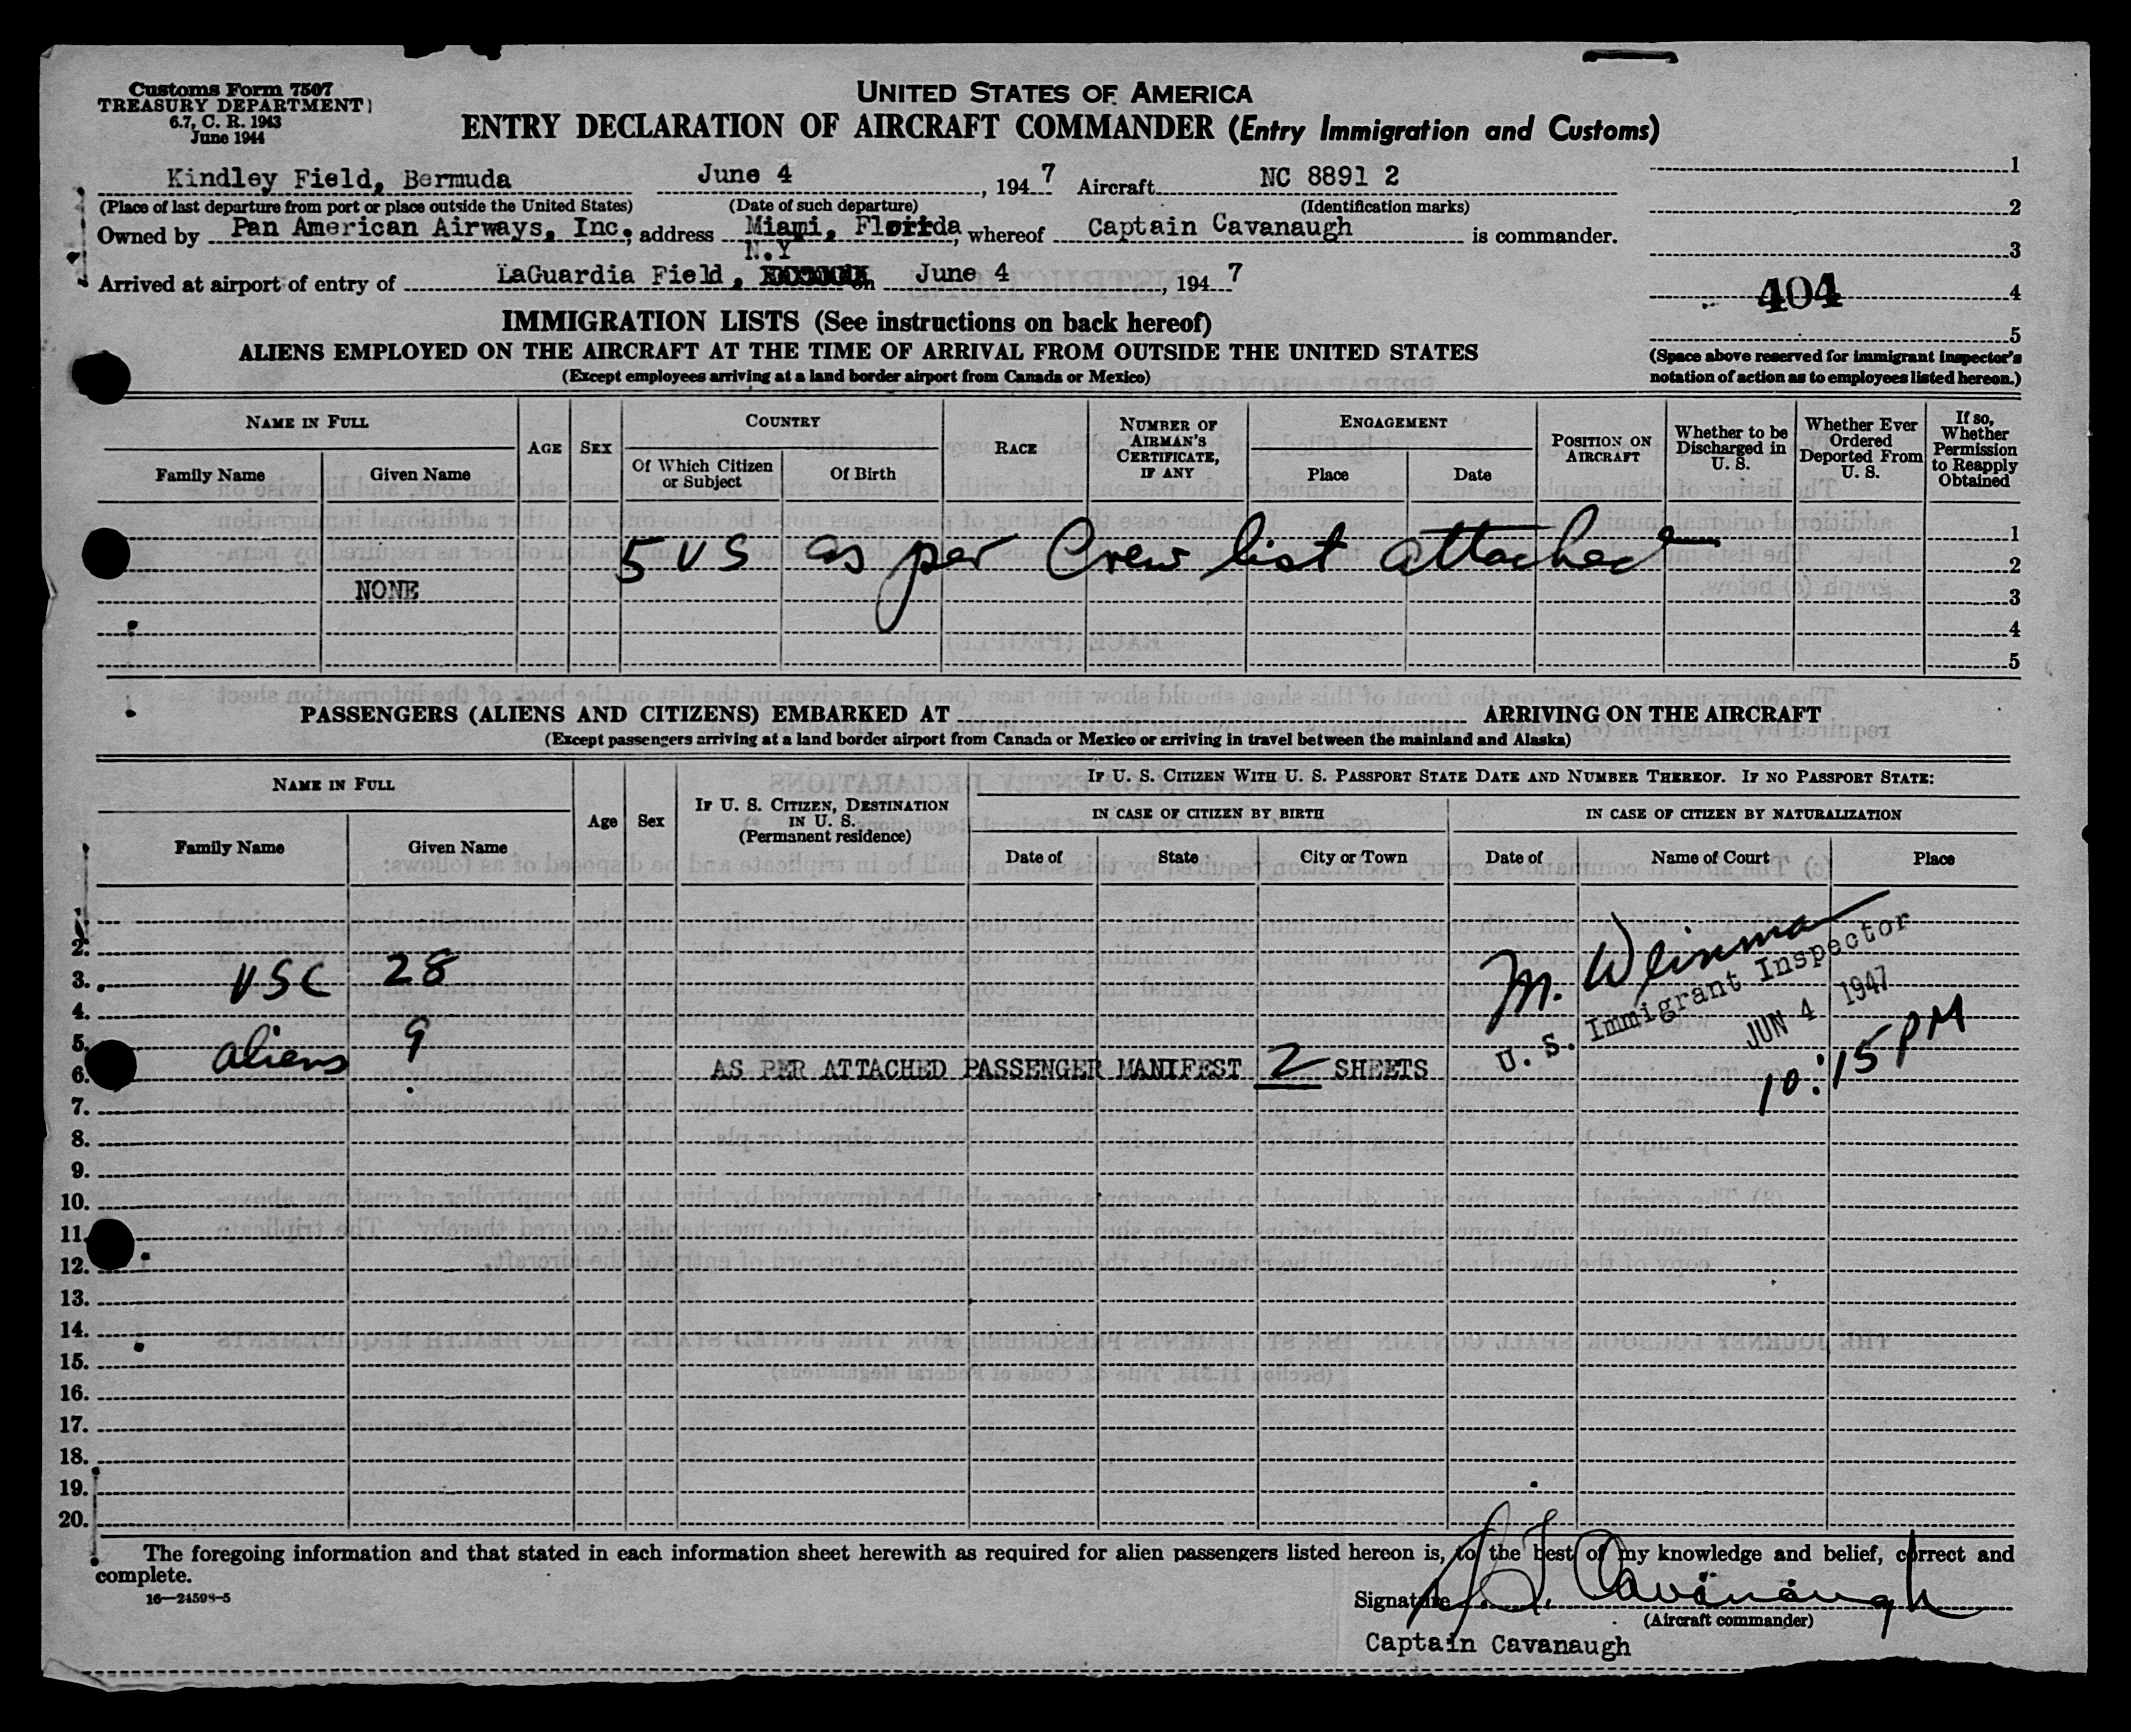 Customs Form 7507
TREASURY DEPARTMENT
6.7, C. R. 1943
June 1944
UNITED STATES OF AMERICA
ENTRY DECLARATION OF AIRCRAFT COMMANDER (Entry Immigration and Customs)
Kindley Field, Bermuda June 4, 1947 Aircraft NC 8891 2
(Place of last departure from port or place outside the United States) (Date of such departure) (Identification marks)
Owned by Pan American Airways, Inc. address Miami, Florida, whereof Captain Cavanaugh is commander.
N.Y
Arrived at airport of entry of LaGuardia Field, on June 4, 1947
1
2
3
404 4
5
(Space above reserved for immigrant inspector's
notation of action as to employees listed hereon.)
IMMIGRATION LISTS (See instructions on back hereof)
ALIENS EMPLOYED ON THE AIRCRAFT AT THE TIME OF ARRIVAL FROM OUTSIDE THE UNITED STATES
(Except employees arriving at a land border airport from Canada or Mexico)
NAME IN FULL
Family Name
Given Name
AGE
SEX
COUNTRY
Of Which Citizen
or Subject
Of Birth
RACE
NUMBER OF
AIRMAN'S
CERTIFICATE,
IF ANY
ENGAGEMENT
Place
Date
POSITION ON
AIRCRAFT
Whether to be
Discharged in
U. S.
Whether Ever
Ordered
Deported From
U. S.
If so,
Whether
Permission
to Reapply
Obtained
1
5 US as per Crew list attached 2
NONE 3
4
5
PASSENGERS (ALIENS AND CITIZENS) EMBARKED AT ARRIVING ON THE AIRCRAFT
(Except passengers arriving at a land border airport from Canada or Mexico or arriving in travel between the mainland and Alaska)
NAME IN FULL
Family Name
Given Name
Age
Sex
IF U. S. CITIZEN, DESTINATION
IN U. S.
(Permanent residence)
IF U. S. CITIZEN WITH U. S. PASSPORT STATE DATE AND NUMBER THEREOF. IF NO PASSPORT STATE:
IN CASE OF CITIZEN BY BIRTH
Date of
State
City or Town
IN CASE OF CITIZEN BY NATURALIZATION
Date of
Name of Court
Place
1.
2.
3. USC 28
4.
5. aliens 9
6. AS PER ATTACHED PASSENGER MANIFEST 2 SHEETS
M.
U. S. Immigrant Inspector
JUN 4 1947
10:15 PM
7.
8.
9.
10.
11.
12.
13.
14.
15.
16.
17.
18.
19.
20.
The foregoing information and that stated in each information sheet herewith as required for alien passengers listed hereon is, to the best of my knowledge and belief, correct and
complete.
16—24598-5
Signature Cavanaugh
(Aircraft commander)
Captain Cavanaugh